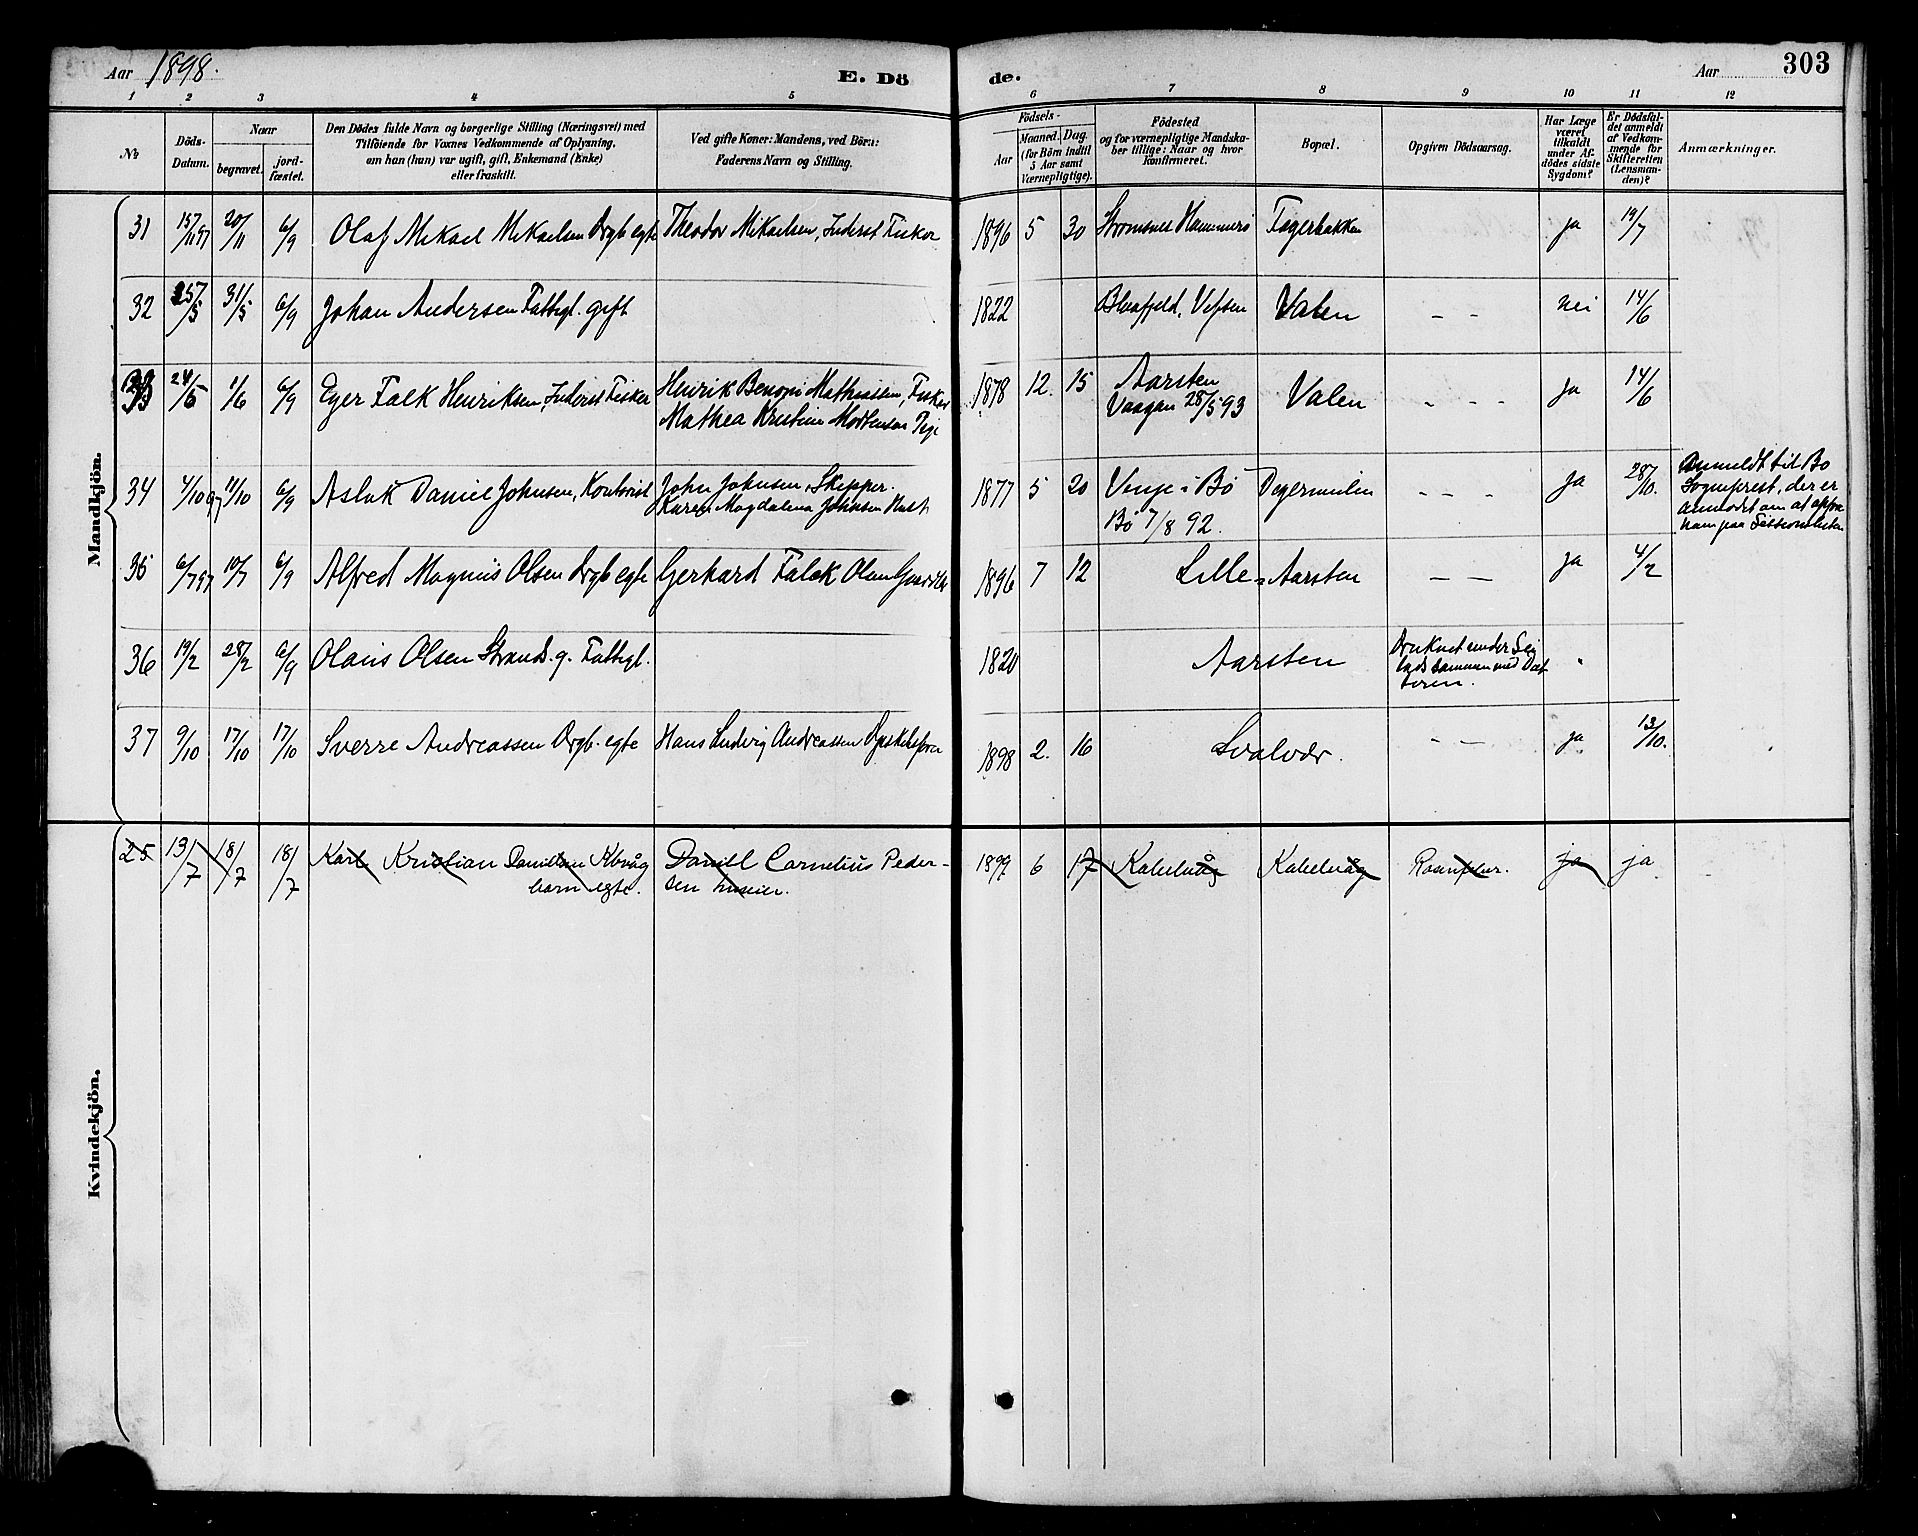 Aar 1898.
E. Dö
de.
Aar
303
1 2 3 4 5 6 7 8 9 10 11 12
№
Döds-
Datum.
Naar
begravet.
jord-
fæstet.
Den Dödes fulde Navn og borgerlige Stilling (Næringsvei) med
Tilföiende for Voxnes Vedkommende af Oplysning,
om han (hun) var ugift, gift, Enkemand (Enke)
eller fraskilt.
Ved gifte Koner: Mandens, ved Börn:
Faderens Navn og Stilling.
Födsels-
Aar
Maaned. Dag.
(for Börn indtil
5 Aar samt
Værnepligtige).
Födested
og for værnepligtige Mandska-
ber tillige: Naar og hvor
Konfirmeret.
Bopæl.
Opgiven Dödsaarsag.
Har Læge
været
tilkaldt
under Af-
dödes sidste
Sygdom?
Er Dödsfal-
det anmeldt
af Vedkom-
mende for
Skifteretten
(Lensman-
den)?
Anmærkninger.
Mandkjön.
31 15/11 97 20/11 6/9 Olaf Mikael Mikaelsen Drgb egte Theodor Mikaelsen, Inderst Fisker 1896 5 30 Strømsnes Hammerø Fagerbakken ja 19/7
32 25/5 31/5 6/9 Johan Andersen Fattigl. gift 1822 Blaafjeld, Vefsen Valen - - nei 14/6
33 24/5 1/6 6/9 Eger Falk Henriksen, Inderst Fisker Henrik Benoni Mathiassen, Fisker 1878 12. 15 Aarsten Valen - - - ja 14/6
Mathea Kristine Mortensen Pige Vaagan 28/5 93
34 4/10 97 11/10 6/9 Aslak Daniel Johnsen, Kontorist John Johnsen, Skipper. 1877 5 20 Vinje i Bø Digermulen - - - ja 28/10. Anmeldt til Bø
Karen Magdalena Johnsen Bø 7/8 92. Sogneprest, der er
anmodet om at opføre
ham paa Sessionslisten
35 6/7 97 10/7 6/9 Alfred Magnus Olsen Drgb egte Gerhard Falck Olsen 1896 7 12 Lille-Aarsten - - ja 4/2
36 19/2 28/2 6/9 Olaus Olsen Strands. g. Fattigl. 1820 Aarsten Druknet under Sei
lads sammen med Dat
teren.
37 9/10 17/10 17/10 Sverre Andreassen Drgb. egte Hans Ludvig Andreassen 1898 2. 16 Svolvær. - - ja 13/10.
Kvindekjön.
25 13/7 18/7 18/7 Karl Kristian Danielsen Kbvåg Daniel Cornelius Peder- 1897 6 17 Kabelvåg Kabelvåg ja ja
barn egte. sen huseier.